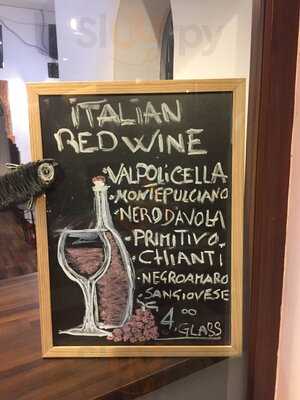 Sluurpy
ITALIAN
RED WINE
• VALPOLICELLA
• MONTEPULCIANO
• NERO D'AVOLA
• PRIMITIVO
• CHIANTI
• NEGROAMARO
• SANGIOVESE
4.00
GLASS